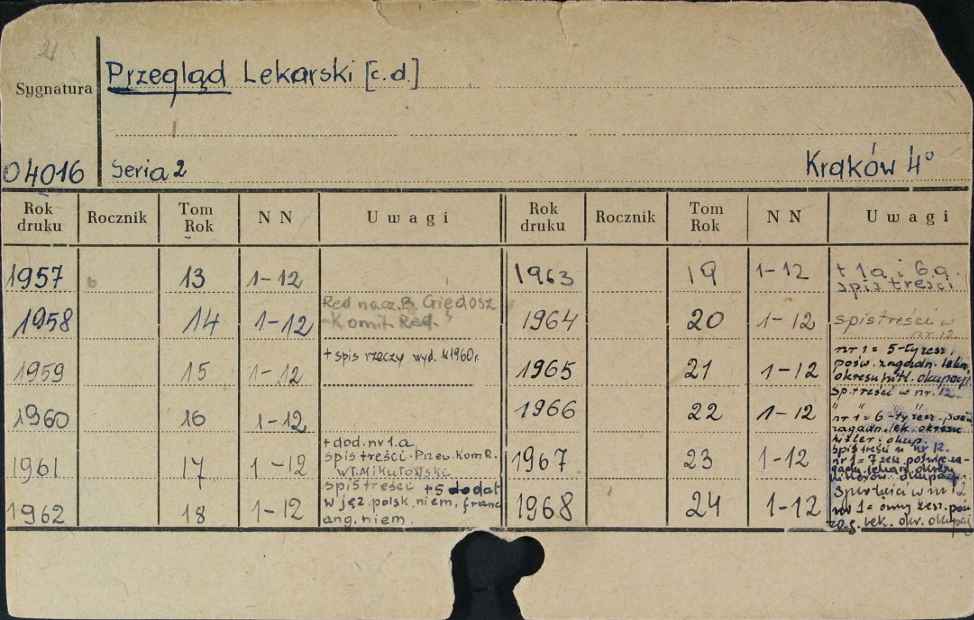 21
Przegląd Lekarski [c.d.]
Sygnatura
04016
Seria 2
Kraków 4°
Rok druku Rocznik Tom Rok NN Uwagi Rok druku Rocznik Tom Rok NN Uwagi
1957 13 1-12
1958 14 1-12 Red. nacz. B. Giędosz
Komit. Red.
1959 15 1-12 + spis rzeczy wyd. w 1960 r.
1960 16 1-12
1961 17 1-12 + dod. nr 1.a
spis treści - Przew. Kom. R.
Wł. Mikułowski
1962 18 1-12 spis treści + 5 dodat
w jęz. polsk, niem, franc
ang. niem.
1963 19 1-12 + 1a. i 6a.
spis treści
1964 20 1-12 spis treści w
nr. 12
1965 21 1-12 nr 1 = 5-ty zesz.
pośw. zagadn. lekar.
okresu hitl. okupacji
sp. treści w nr. 12.
1966 22 1-12 nr 1 = 6-ty zesz. pośw.
zagadn. lek. okresu
hitler. okup.
spis treści w nr 12.
1967 23 1-12 nr 1 = 7 zesz. poświę. za-
gadn. lekars. okresu
okupacji
1968 24 1-12 Spis treści w nr 12
nr 1 = ósmy zesz. pośw
zag. lek. okr. okupacji